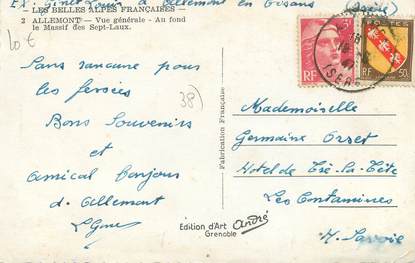 Ex. Ginet Louis à Allemont en Oisans (Isère)
LES BELLES ALPES FRANÇAISES
2 ALLEMONT - Vue générale - Au fond
le Massif des Sept-Laux.
10 €
38)
Sans rancune pour
les
Bons Souvenirs
et
amical bonjour
d'Allemont
LGinet
Fabrication Française
Édition d'Art André
Grenoble
RF
ISERE
RF
50c
Mademoiselle
Germaine Orset
Hotel de Tré-la-Tête
Les Contamines
Hte Savoie